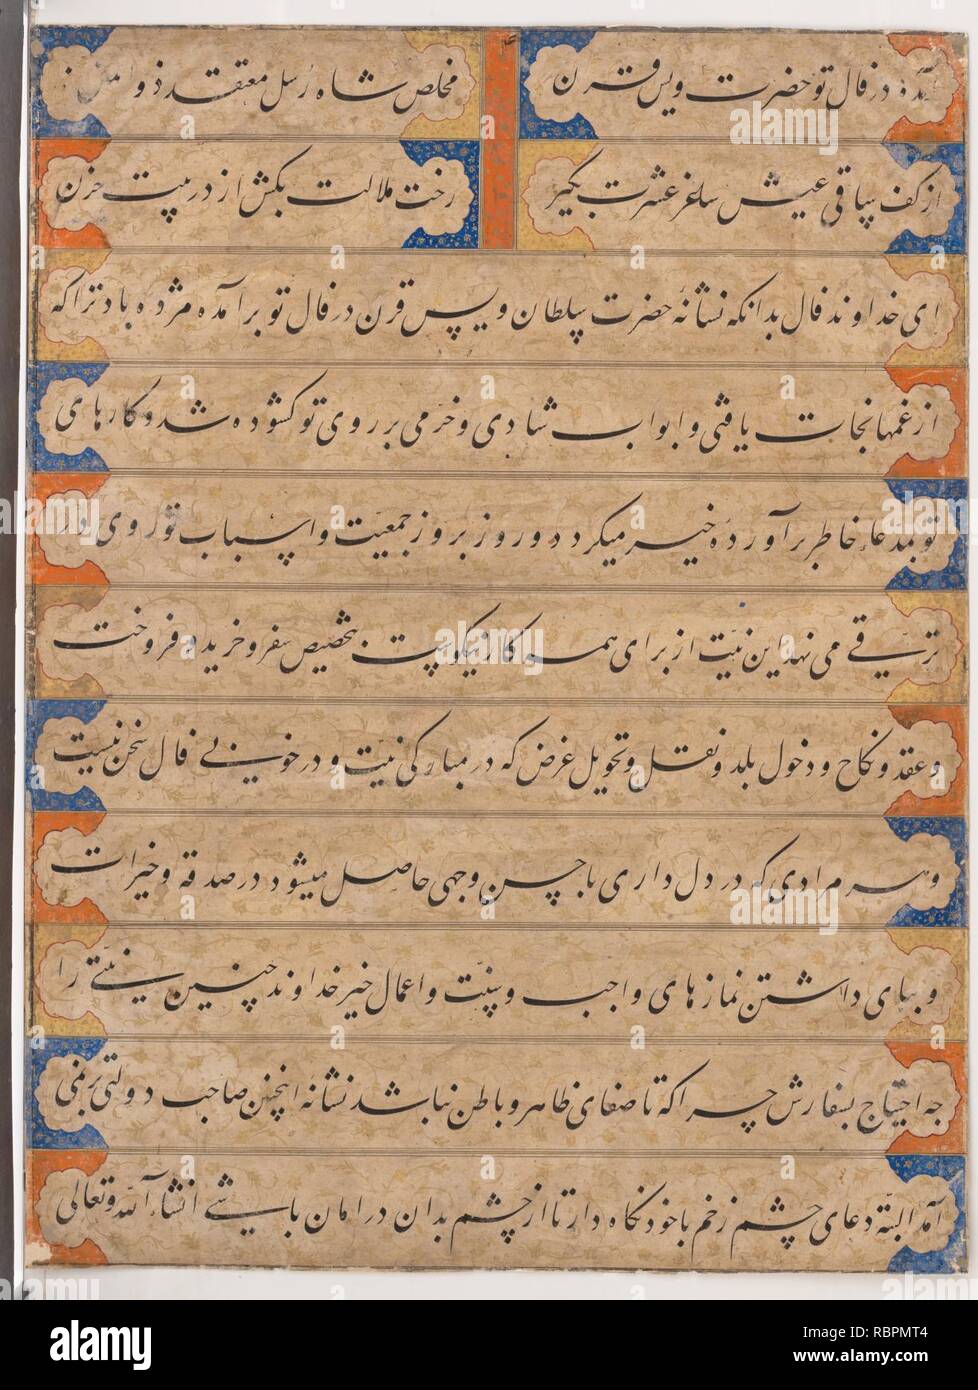 آمده در فال تو حضرت ویس قرن
مخلص شاه رسل معتقد ذوالمنن
از کف ساقی عیش ساغر عشرت بگیر
رخت ملالت بکش از در بیت حزن
ای خداوند فال بدانکه نشانهٔ حضرت سلطان ویس قرن در فال تو برآمده مژده باد ترا که
از غمها نجات یافتی و ابواب شادی و خرمی بر روی تو کشوده شد و کارهای
تو بمدعاء خاطر برآورده خیر میکردد و روز بروز جمعیت و اسباب تو روی در
ترقی می نهد این نیت از برای همه کار نیکوست بتخصیص سفر و خرید و فروخت
و عقد و نکاح و دخول بلد و نقل و تحویل غرض که در مبارکی نیت و در خوبی فال سخن نیست
و هر مرادی که در دل داری باحسن وجهی حاصل میشود در صدقه و خیرات
و بپای داشتن نمازهای واجب و سنت و اعمال خیر خداوند چنین نیتی را
چه احتیاج بسفارش چرا که تا صفای ظاهر و باطن نباشد نشانهٔ اینچنین صاحب دولتی برنمی
آمد البته دعای چشم زخم با خود نکاه دار تا از چشم بدان در امان باشی انشاء الله تعالی
alamy
Image ID: RBPMT4
www.alamy.com